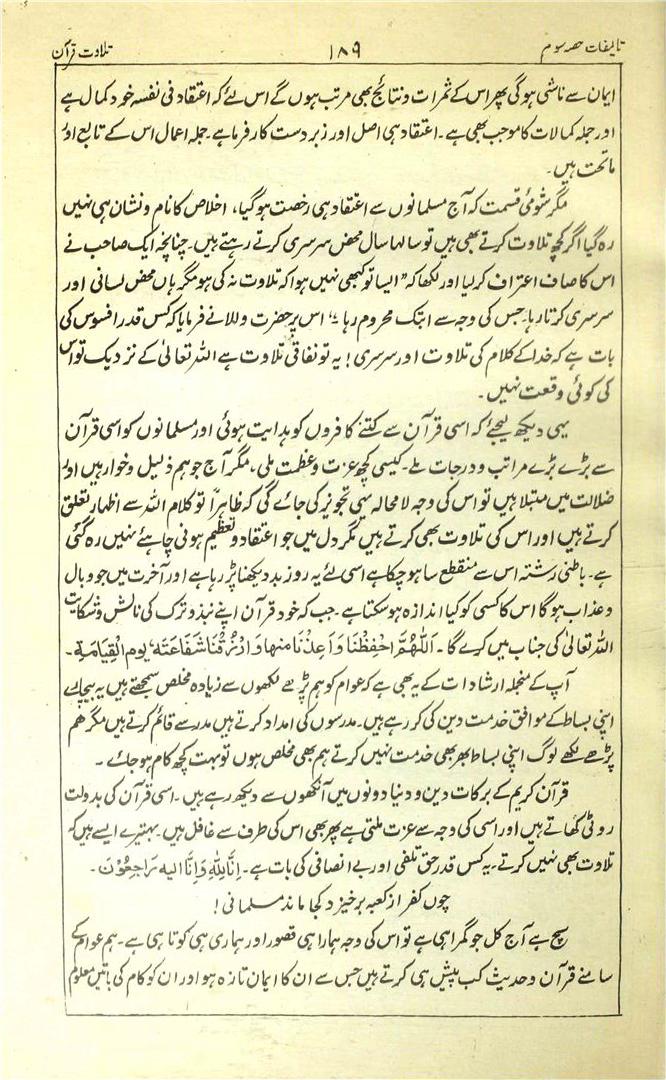 تالیفات حصہ سوم ۱۸۹ تلاوت قرآن
ایمان سے ناشی ہوگی پھر اس کے ثمرات و نتائج بھی مرتب ہوں گے اس لئے کہ اعتقاد فی نفسہ خود کمال ہے
اور جملہ کمالات کا موجب بھی ہے۔ اعتقاد ہی اصل اور زبردست کارفرما ہے۔ جملہ اعمال اس کے تابع اور
ماتحت ہیں۔
مگر شومئ قسمت کہ آج مسلمانوں سے اعتقاد ہی رخصت ہوگیا، اخلاص کا نام و نشان ہی نہیں
رہ گیا اگر کچھ تلاوت کرتے بھی ہیں تو سالہا سال محض سرسری کرتے رہتے ہیں۔ چنانچہ ایک صاحب نے
اس کا صاف اعتراف کرلیا اور لکھا کہ "ایسا تو کبھی نہیں ہوا کہ تلاوت نہ کی ہو مگر ہاں محض لسانی اور
سرسری کرتا رہا۔ جس کی وجہ سے ابتک محروم رہا" اس پر حضرت والا نے فرمایا کہ کس قدر افسوس کی
بات ہے کہ خدا کے کلام کی تلاوت اور سرسری! یہ تو نفاقی تلاوت ہے اللہ تعالیٰ کے نزدیک تو اس
کی کوئی وقعت نہیں۔
یہی دیکھ لیجئے کہ اسی قرآن سے کتنے کافروں کو ہدایت ہوئی اور مسلمانوں کو اسی قرآن
سے بڑے بڑے مراتب و درجات ملے۔ کیسی کچھ عزت و عظمت ملی، مگر آج جو ہم ذلیل و خوار ہیں اور
ضلالت میں مبتلا ہیں تو اس کی وجہ لامحالہ یہی تجویز کی جائے گی کہ ظاہراً تو کلام اللہ سے اظہار تعلق
کرتے ہیں اور اس کی تلاوت بھی کرتے ہیں مگر دل میں جو اعتقاد و تعظیم ہونی چاہئے نہیں رہ گئی
ہے۔ باطنی رشتہ اس سے منقطع سا ہوچکا ہے اسی لئے یہ روز بد دیکھنا پڑ رہا ہے اور آخرت میں جو وبال
و عذاب ہوگا اس کا کسی کو کیا اندازہ ہوسکتا ہے۔ جب کہ خود قرآن اپنے نبذ و ترک کی نالش و شکایت
اللہ تعالیٰ کی جناب میں کرے گا۔ اَللّٰهُمَّ احْفِظْنَا وَاَعِذْنَا منها وَارْزُقْنَا شَفَاعَتَه، یوم الْقِیَامَةِ۔
آپ کے منجملہ ارشادات کے یہ بھی ہے کہ عوام کو ہم پڑھے لکھوں سے زیادہ مخلص سمجھتے ہیں یہ بیچارے
اپنی بساط کے موافق خدمت دین کی کر رہے ہیں۔ مدرسوں کی امداد کرتے ہیں مدرسے قائم کرتے ہیں مگر ھم
پڑھے لکھے لوگ اپنی بساط بھر بھی خدمت نہیں کرتے ہم بھی مخلص ہوں تو بہت کچھ کام ہوجائے۔
قرآن کریم کے برکات دین و دنیا دونوں میں آنکھوں سے دیکھ رہے ہیں۔ اسی قرآن کی بدولت
روٹی کھاتے ہیں اور اسی کی وجہ سے عزت ملتی ہے پھر بھی اس کی طرف سے غافل ہیں۔ بہتیرے ایسے ہیں کہ
تلاوت بھی نہیں کرتے۔ یہ کس قدر حق تلفی اور بے انصافی کی بات ہے۔ اِنَّا لِلّٰهِ وَاِنَّا الیه رَاجِعُوْنَ۔
چوں کفر از کعبہ برخیزد کجا ماند مسلمانی!
سچ ہے آج کل جو گمراہی ہے تو اس کی وجہ ہمارا ہی قصور اور ہماری ہی کوتاہی ہے۔ ہم عوام کے
سامنے قرآن و حدیث کب پیش ہی کرتے ہیں جس سے ان کا ایمان تازہ ہو اور ان کو کام کی باتیں معلوم